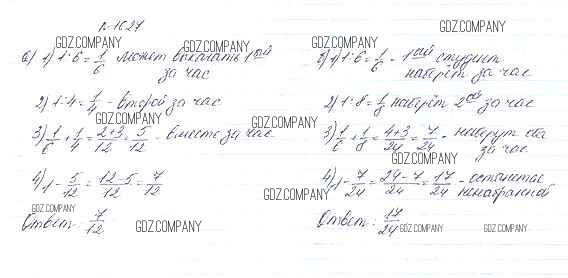 № 1627
GDZ.COMPANY
GDZ.COMPANY
а) 1) 1:6 = 1/6 может выкачать 1ый
GDZ.COMPANY
за час
2) 1:4 = 1/4 - второй за час
3) 1/6 + 1/4 = 2+3/12 = 5/12 - вместе за час
GDZ.COMPANY
4) 1 - 5/12 = 12-5/12 = 7/12
GDZ.COMPANY
Ответ: 7/12
GDZ.COMPANY
GDZ.COMPANY
1) 1:6 = 1/6 - 1ый студент
наберёт за час
2) 1:8 = 1/8 наберёт 2ой за час
3) 1/6 + 1/8 = 4+3/24 = 7/24 - наберут оба
за час
GDZ.COMPANY
4) 1 - 7/24 = 24-7/24 = 17/24 - останется
GDZ.COMPANY
ненабранной
Ответ: 17/24
GDZ.COMPANY
GDZ.COMPANY